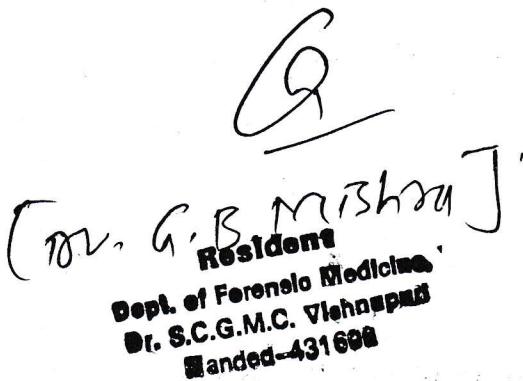 [Dr. G.B Mishra]
Resident
Dept. of Forensic Medicine,
Dr. S.C.G.M.C. Vishnupuri
Nanded-431606